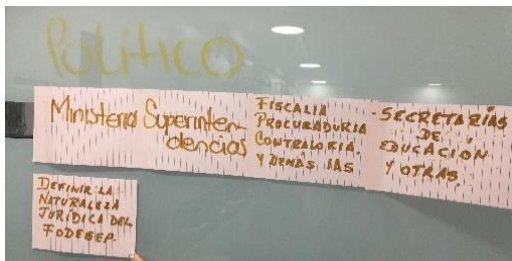 Político
Ministerio
Superinten-
dencias
FISCALIA
PROCURADURIA
CONTRALORIA.
Y DEMÁS IAS
SECRETARÍAS
DE
EDUCACIÓN
Y OTRAS.
DEFINIR LA
NATURALEZA
JURÍDICA DEL
FODESEP.